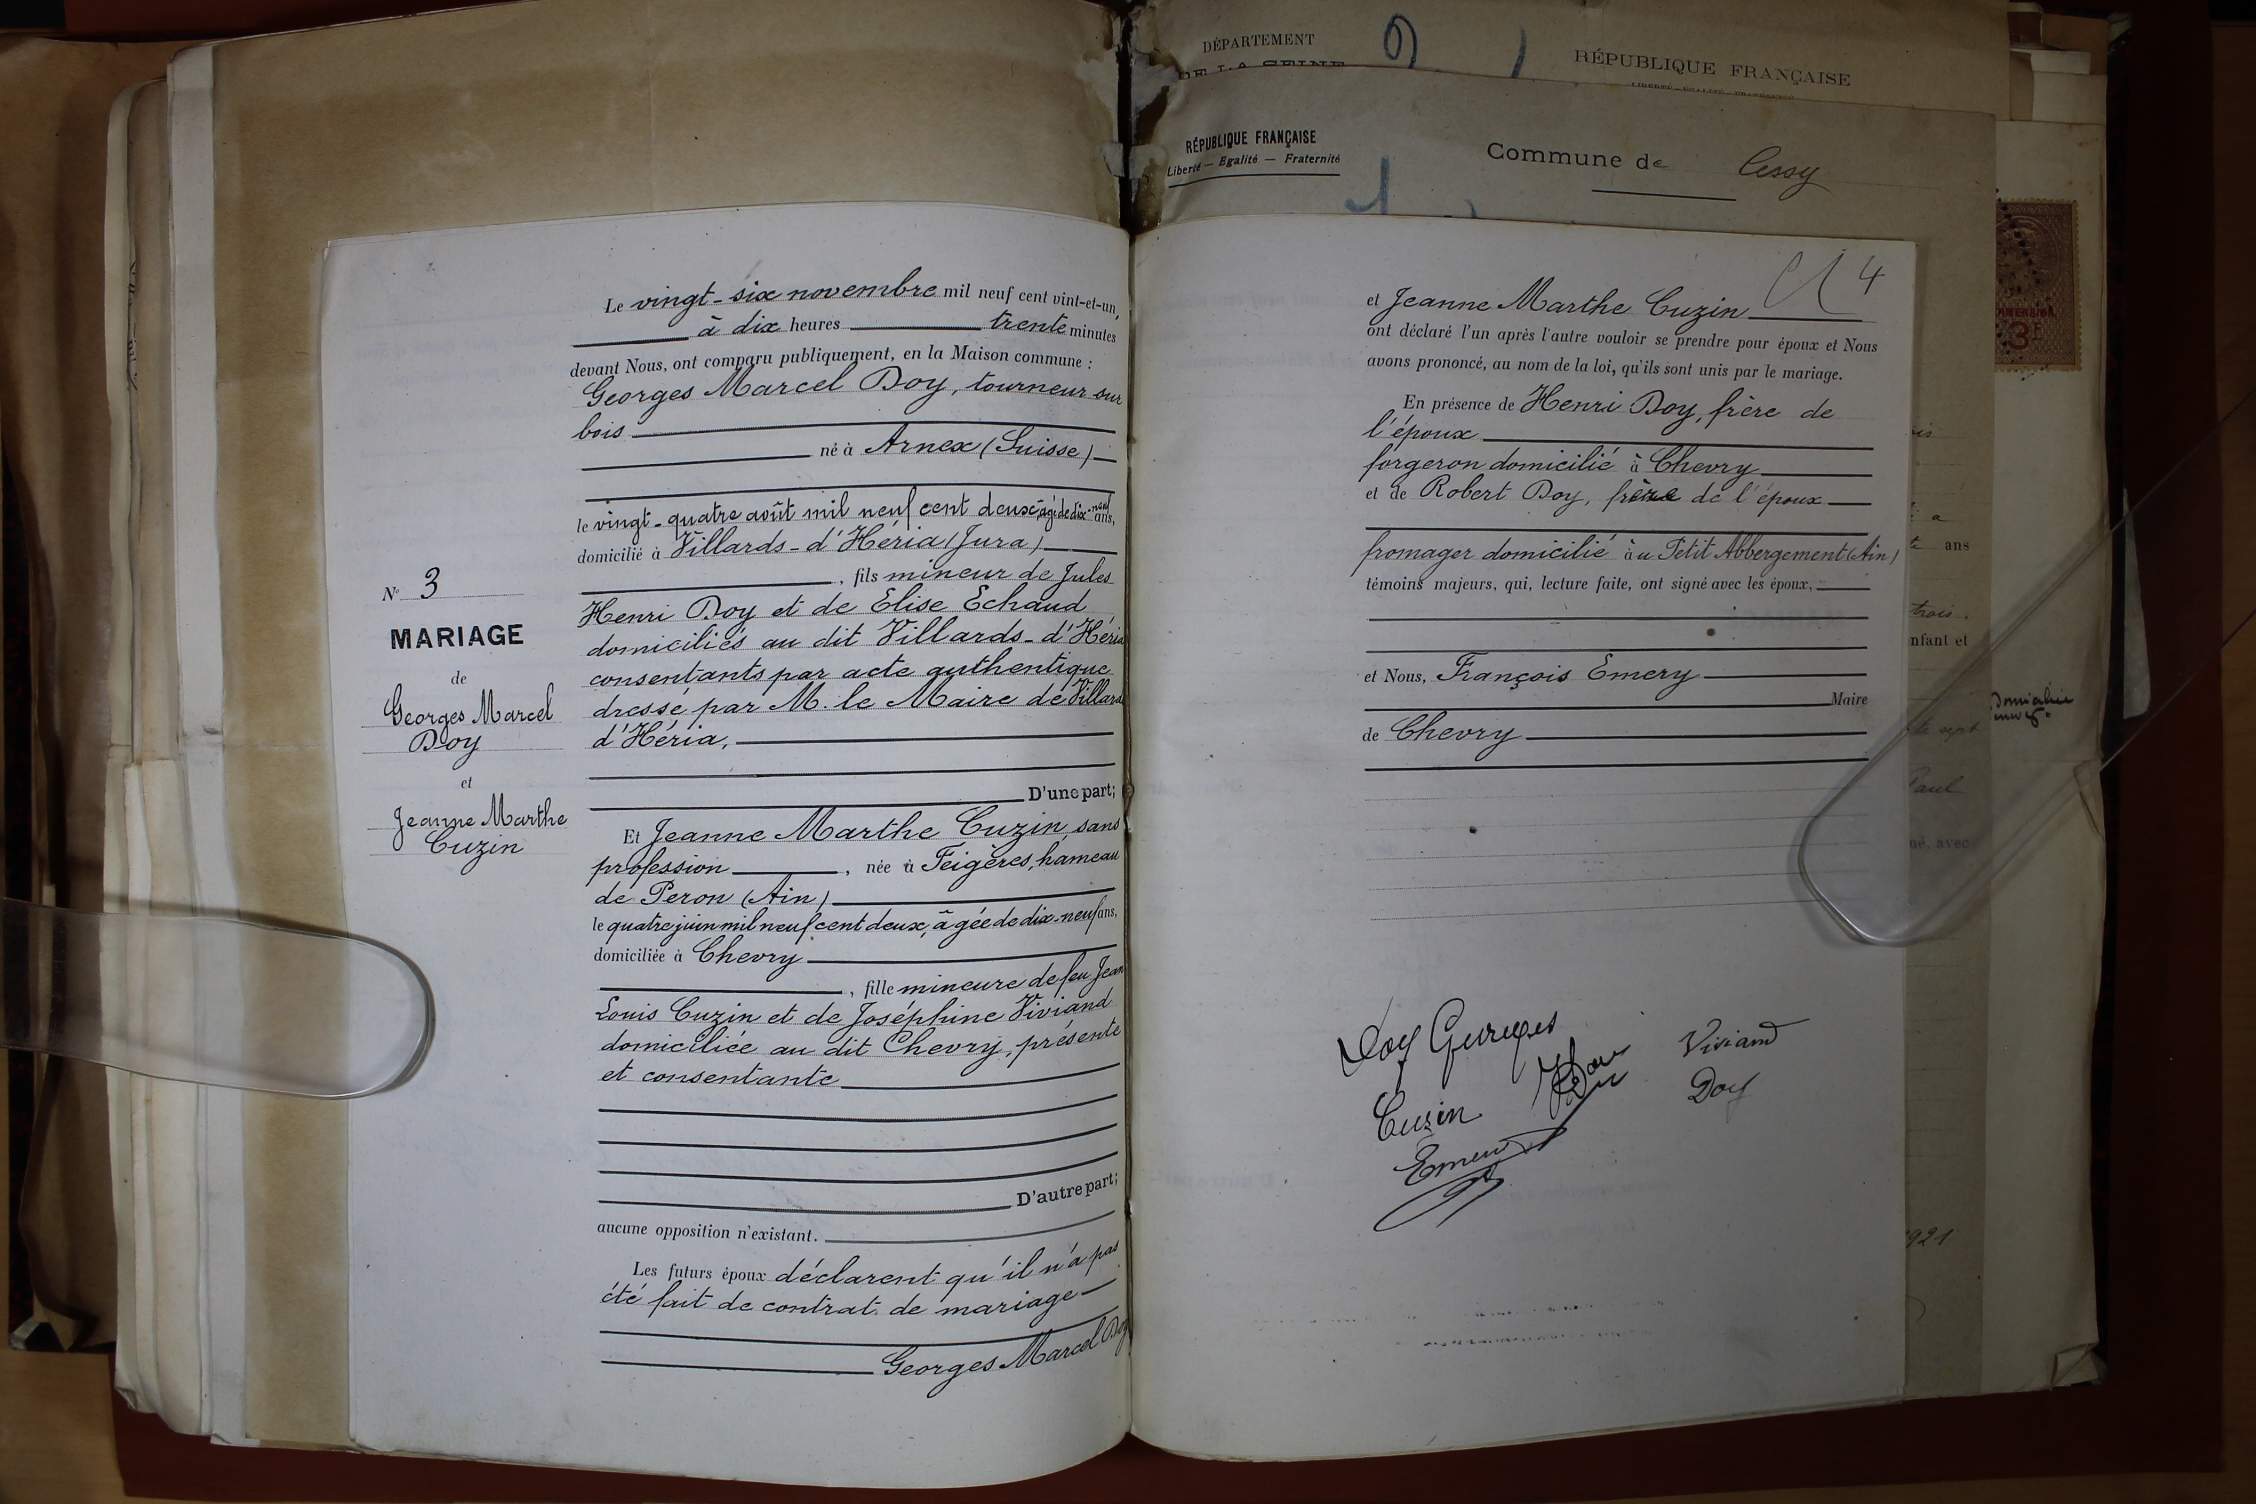 DÉPARTEMENT
DE LA SEINE
RÉPUBLIQUE FRANÇAISE
LIBERTÉ - ÉGALITÉ - FRATERNITÉ
RÉPUBLIQUE FRANÇAISE
Liberté — Egalité — Fraternité
Commune de Cessy
N° 3
MARIAGE
de
Georges Marcel
Doy
et
Jeanne Marthe
Cuzin
Le vingt-six novembre mil neuf cent vint-et-un,
à dix heures trente minutes
devant Nous, ont comparu publiquement, en la Maison commune :
Georges Marcel Doy, tourneur sur
bois
né à Arnex (Suisse)
le vingt-quatre août mil neuf cent deux, âgé de dix-neuf ans,
domicilié à Villards-d'Héria (Jura)
, fils mineur de Jules
Henri Doy et de Elise Echaud
domiciliés au dit Villards-d'Héria
consentants par acte authentique
dressé par M. le Maire de Villards
d'Héria,
D'une part;
Et Jeanne Marthe Cuzin, sans
profession , née à Feigères, hameau
de Peron (Ain)
le quatre juin mil neuf cent deux, âgée de dix-neuf ans,
domiciliée à Chevry
, fille mineure de feu Jean
Louis Cuzin et de Joséphine Viviand
domiciliée au dit Chevry, présente
et consentante
D'autre part;
aucune opposition n'existant.
Les futurs époux déclarent qu'il n'a pas
été fait de contrat de mariage
Georges Marcel Doy
4
et Jeanne Marthe Cuzin
ont déclaré l'un après l'autre vouloir se prendre pour époux et Nous
avons prononcé, au nom de la loi, qu'ils sont unis par le mariage.
En présence de Henri Doy, frère de
l'époux
forgeron domicilié à Chevry
et de Robert Doy, frère de l'époux
fromager domicilié au Petit Abbergement (Ain)
témoins majeurs, qui, lecture faite, ont signé avec les époux,
et Nous, François Emery
Maire
de Chevry
Doy Georges
Viviand
Cuzin
Doy
Emery
3F
ans
trois.
nfant et
Domiciliée
te sept
Paul
né, avec
1921